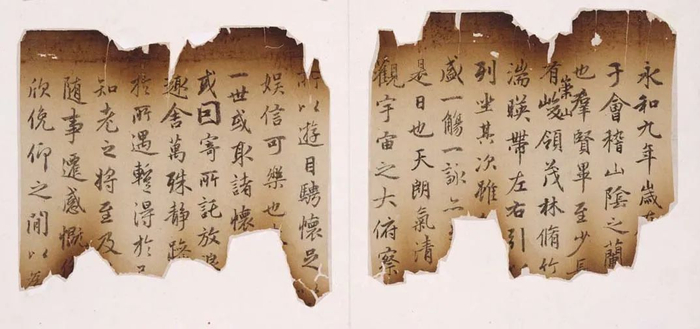 永和九年歲
于會稽山陰之蘭
也羣賢畢至少長
有崇山峻領茂林脩竹
湍暎帶左右引
列坐其次雖
盛一觴一詠亦
是日也天朗氣清
觀宇宙之大俯察
所以遊目騁懷足
娛信可樂也
一世或取諸懷
或因寄所託放浪
趣舍萬殊静躁
於所遇蹔得於
知老之將至及
随事遷感慨
欣俛仰之閒以